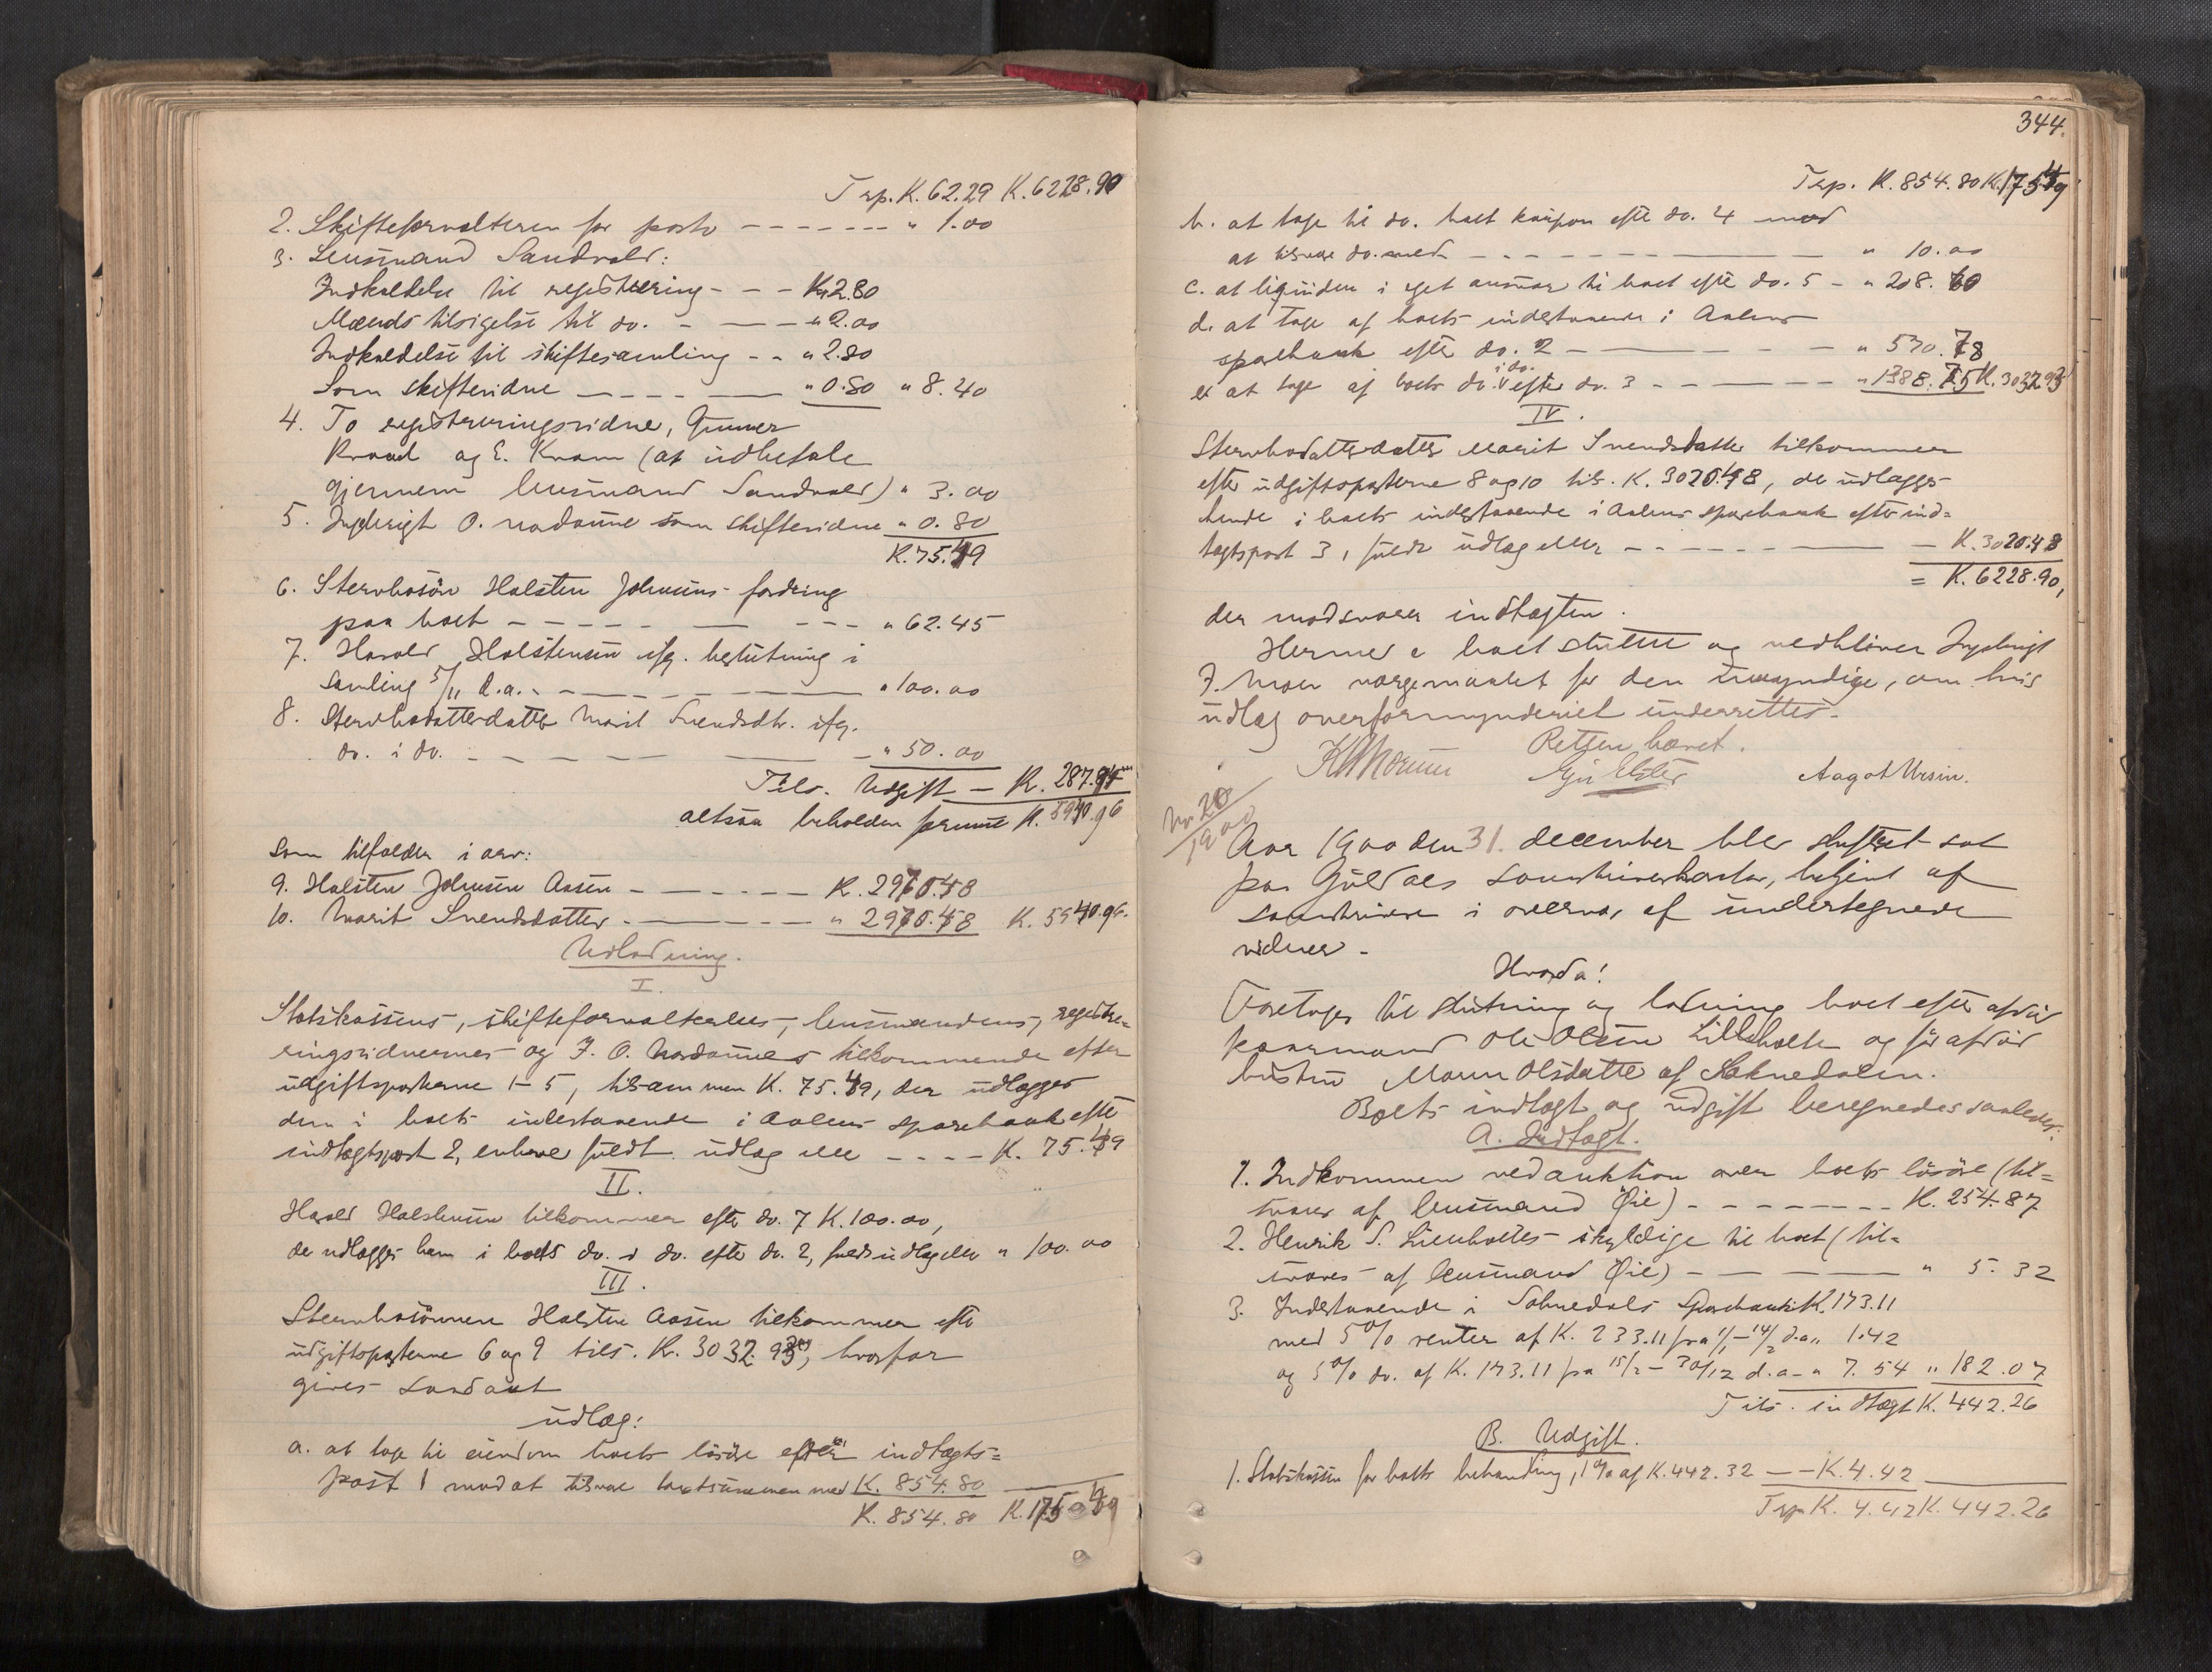 Trp. K. 62.29 K. 6228.90
2. Skifteforvalteren for porto - - - - - - - " 1.00
3. Lensmand Sandvold:
Indkaldelse til registrering - - - K. 2.80
Mænds tilsigelse til do. - - - " 2.00
Indkaldelse til skiftesamling - - " 2.80
Som skiftevidne - - - - " 0.80 " 8.40
4. To registreringsvidne, Gunner
og E. Kvam (at udbetale
gjennem lensmand Sandvold) " 3.00
5. Ingebrigt O. som skiftevidne " 0.80
K. 75.49
6. Stervbosøn Halsten Johnsens fordring
paa boet - - - - - - - - " 62.45
7. Harald Halstensen ifg. beslutning i
samling 5/11 d.a. - - - - " 100.00
8. Stervbodatterdatter Marit Svendsdtr. ifg.
do. i do. - - - - - " 50.00
Tils. Udgift - K. 287.94
altsaa beholden formue K. 5940.96
som tilfalder i arv:
9. Halsten Johnsen Aasen - - - - - K. 2970.48
10. Marit Svendsdatter - - - - " 2970.48 K. 5940.96.
Udlodning.
I.
Statskassens, skifteforvalterens, lensmandens, registre=
ringsvidnernes og I. O. tilkommende efter
udgiftsposterne 1-5, tilsammen K. 75.49, der udlægges
dem i boets indestaaende i Aalens sparebank efter
indtægtspost 2, enhver fuldt udlæg eller - - - - K. 75.49
II.
Harald Halstensen tilkommer efter do. 7 K. 100.00,
der udlægges ham i boets do. i do. efter do. 2, fuldt udlæg eller " 100.00
III.
Stervbosønnen Halsten Aasen tilkommer efter
udgiftsposterne 6 og 9 tils. K. 3032.93, hvorfor
gives saadant
udlæg:
a. at tage til eiendom boets løsøre efter indtægts=
post 1 mod at tilsvare taxtsummen med K. 854.80
K. 854.80 K. 175.49
344.
Trp. K. 854.80 K. 175.49
b. at tage til do. boet kaupon efter do. 4 mod
at tilsvare do. med - - - - - " 10.00
c. at liqvidere i eget ansvar til boet efter do. 5 - " 208.60
d. at tage af boets indestaaende i Aalens
sparebank efter do. 2 - - - - " 570.78
e. at tage af boets do. i do. efter do. 3 - - - - " 1388.75 K. 3032.93
IV.
Stervbodatterdatter Marit Svendsdatter tilkommer
efter udgiftsposterne 8 og 10 tils. K. 3020.48, der udlægges
hende i boets indestaaende i Aalens sparebank efter ind=
tægtspost 3, fuldt udlæg eller - - - - - K. 3020.48
= K. 6228.90,
der modsvarer indtægten.
Hermed er boet sluttet og vedbliver Ingebrigt
J. Moen værgemaalet for den umyndige, om hvis
udlæg overformynderiet underrettes.
Retten hævet.
Aagot Ursin.
No. 20/1900
Aar 1900 den 31. december blev skifteret sat
paa Guldals sorenskriverkontor, betjent af
sorenskriveren i overvær af undertegnede
vidner -
Hvorda!
Foretoges til slutning og lodning boet efter afdøde
kaarmand Ole Olsen Lillebolte og før afdøde
hustru Maren Olsdatter af Soknedalen.
Boets indtægt og udgift beregnedes saaledes:
A. Indtægt.
1. Indkommen ved auktion over boets løsøre (til=
svares af lensmand Øie) - - - - - - - K. 254.87
2. Henrik S. skyldige til boet (til=
svares af lensmand Øie) - - - - " 5.32
3. Indestaaende i Soknedals Sparebank K. 173.11
med 5% renter af K. 233.11 fra 1/1 - 14/2 d.a. " 1.42
og 5% do. af K. 173.11 fra 15/2 - 30/12 d.a. - " 7.54 " 182.07
Tils. indtægt K. 442.26
B. Udgift.
1. Statskassen for boets behandling, 1% af K. 442.32 - - K. 4.42
Trp. K. 4.42 K. 442.26